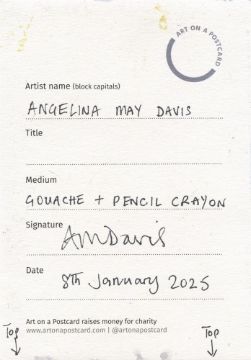 ART ON A POSTCARD
Artist name (block capitals)
ANGELINA MAY DAVIS
Title
Medium
GOUACHE + PENCIL CRAYON
Signature
AMDavis
Date
8th January 2025
Art on a Postcard raises money for charity
www.artonapostcard.com | @artonapostcard
Top
Top